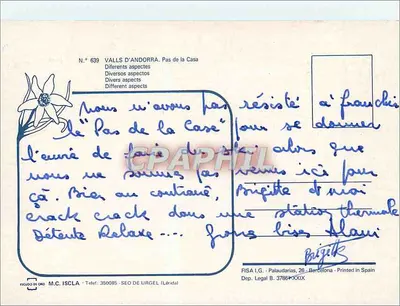 N.° 639 VALLS D'ANDORRA. Pas de la Casa
Diferents aspectes
Diversos aspectos
Divers aspects
Different aspects
Nous n'avons pas résisté à franchir
le "Pas de la Case" pour se donner
l'envie de faire du ski alors que
nous ne sommes pas venus ici pour
çà. Bien au contraire, Brigitte et moi
crack crack dans une station thermale
Détente Relaxe ---. gros bises Alain
Brigitte
CPAPHIL
M.C. ISCLA - Telef: 350095 - SEO DE URGEL (Lérida)
FISA I.G. - Palaudarias, 26 - Barcelona - Printed in Spain
Dep. Legal B. 37864-XXIX